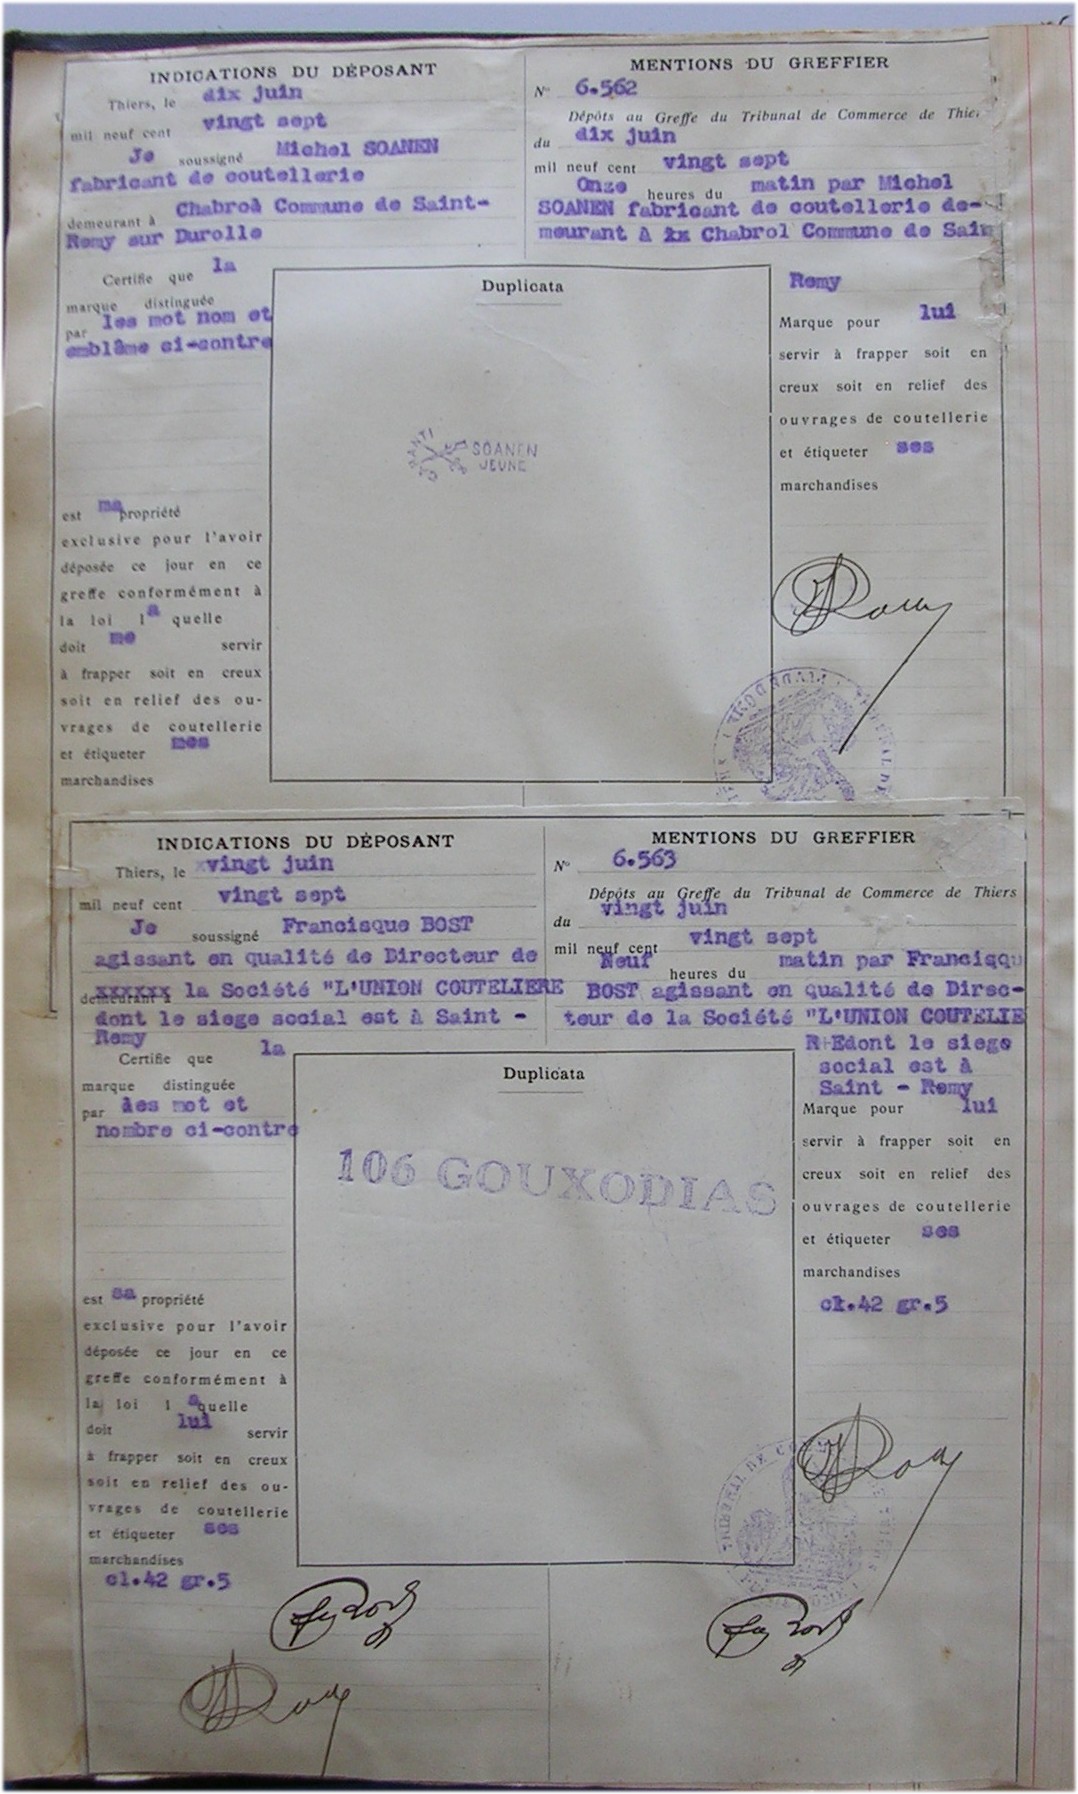 INDICATIONS DU DÉPOSANT
Thiers, le dix juin
mil neuf cent vingt sept
Je soussigné Michel SOANEN
fabricant de coutellerie
demeurant à Chabroà Commune de Saint-
Remy sur Durolle
Certifie que la
marque distinguée
par les mot nom et
emblâme ci-contre
est ma propriété
exclusive pour l'avoir
déposée ce jour en ce
greffe conformément à
la loi la quelle
doit me servir
à frapper soit en creux
soit en relief des ou-
vrages de coutellerie
et étiqueter mes
marchandises
Duplicata
GARANTI
SOANEN
JEUNE
MENTIONS DU GREFFIER
N° 6.562
Dépôts au Greffe du Tribunal de Commerce de Thier
du dix juin
mil neuf cent vingt sept
Onze heures du matin par Michel
SOANEN fabricant de coutellerie de-
meurant à Chabrol Commune de Sain
Remy
Marque pour lui
servir à frapper soit en
creux soit en relief des
ouvrages de coutellerie
et étiqueter ses
marchandises
INDICATIONS DU DÉPOSANT
Thiers, le xvingt juin
mil neuf cent vingt sept
Je soussigné Francisque BOST
agissant en qualité de Directeur de
demeurant à xxxxxx la Société "L'UNION COUTELIERE
dont le siege social est à Saint -
Remy
Certifie que la
marque distinguée
par des mot et
nombre ci-contre
est sa propriété
exclusive pour l'avoir
déposée ce jour en ce
greffe conformément à
la loi la quelle
doit lui servir
à frapper soit en creux
soit en relief des ou-
vrages de coutellerie
et étiqueter ses
marchandises
cl.42 gr.5
Duplicata
106 GOUXODIAS
MENTIONS DU GREFFIER
N° 6.563
Dépôts au Greffe du Tribunal de Commerce de Thiers
du vingt juin
mil neuf cent vingt sept
Neuf heures du matin par Francisqu
BOST agissant en qualité de Direc-
teur de la Société "L'UNION COUTELIE
R+Edont le siege
social est à
Saint - Remy
Marque pour lui
servir à frapper soit en
creux soit en relief des
ouvrages de coutellerie
et étiqueter ses
marchandises
cl.42 gr.5
TRIBUNAL DE COM